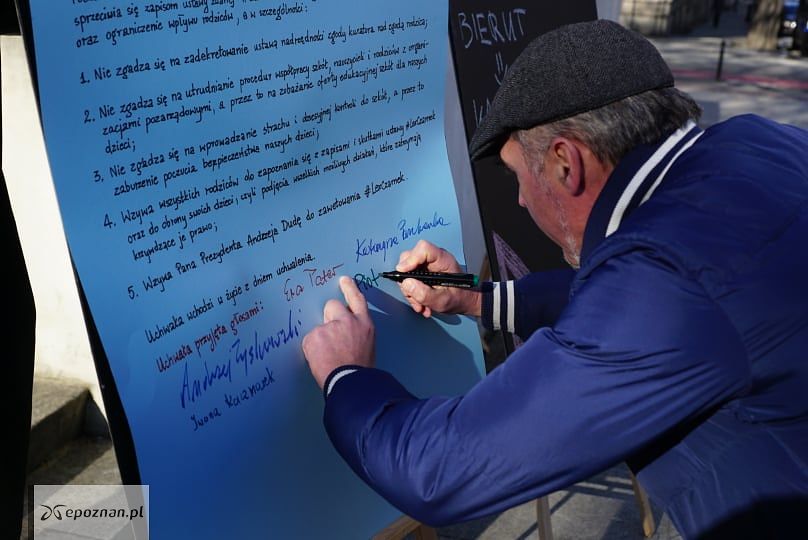 sprzeciwia się zapisom ustawy
oraz ograniczenie wpływu rodziców, a w szczególności:
1. Nie zgadza się na zadekretowanie ustawą nadrzędności zgody kuratora nad zgodą rodziców;
2. Nie zgadza się na utrudnianie procedur współpracy szkół, nauczycieli i rodziców z organi-
zacjami pozarządowymi, a przez to na zubażanie oferty edukacyjnej szkół dla naszych
dzieci;
3. Nie zgadza się na wprowadzanie strachu i obsesyjnej kontroli do szkół, a przez to
zaburzenie poczucia bezpieczeństwa naszych dzieci;
4. Wzywa wszystkich rodziców do zapoznania się z zapisami i skutkami ustawy #LexCzarnek
oraz do obrony swoich dzieci, czyli podjęcia wszelkich możliwych działań, które zatrzymają
krzywdzące je prawo;
5. Wzywa Pana Prezydenta Andrzeja Dudę do zawetowania #LexCzarnek.
Uchwała wchodzi w życie z dniem uchwalenia.
Uchwała przyjęta głosami:
Ewa
Katarzyna
Piot
Andrzej
Iwona Kaczmarek
BIERUT
epoznan.pl